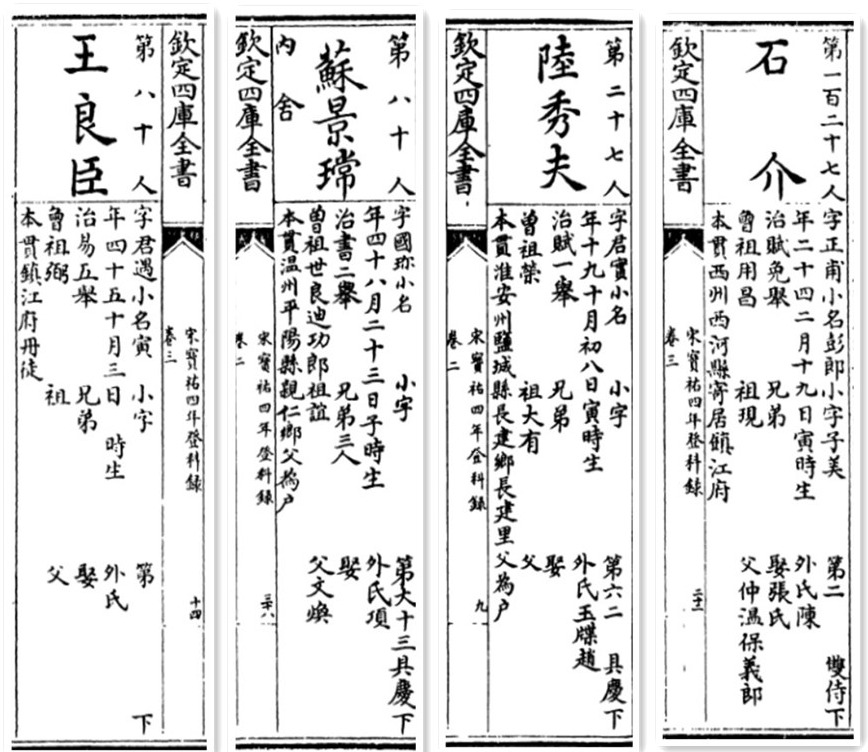 第一百二十七人
石介
字正甫小名彭郎小字子美 第二 雙侍下
年二十四二月十九日寅時生 外氏陳
治賦免舉 兄弟 娶張氏
曾祖用昌 祖現 父仲温保義郎
本貫西州西河縣寄居鎮江府
欽定四庫全書
宋寶祐四年登科錄
卷三
第二十七人
陸秀夫
字君實小名 小字 第六二 具慶下
年十九十月初八日寅時生 外氏玉牒趙
治賦一舉 兄弟 娶
曾祖榮 祖大有 父
本貫淮安州鹽城縣長建鄉長建里父為户
欽定四庫全書
宋寶祐四年登科錄
卷二
九
第八十人
蘇景瑺
内舍
字國珎小名 小字 第大十三具慶下
年四十八月二十三日子時生 外氏項
治書二舉 兄弟三人 娶
曾祖世良迪功郎祖誼 父文煥
本貫温州平陽縣親仁鄉父為户
欽定四庫全書
宋寶祐四年登科錄
卷二
三十八
第八十人
王良臣
字君遇小名寅 小字 第 下
年四十五十月三日 時生 外氏
治易五舉 兄弟 娶
曾祖弼 祖 父
本貫鎮江府丹徒
欽定四庫全書
宋寶祐四年登科錄
卷三
十四